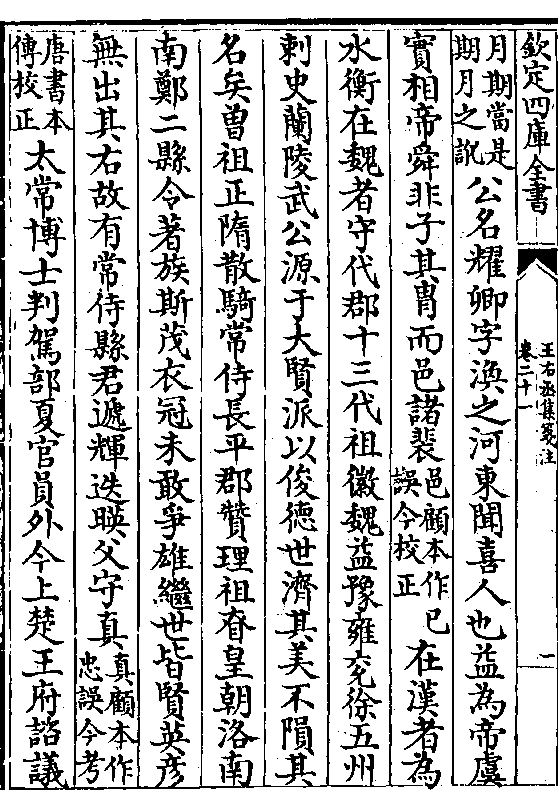 欽定四庫全書
王右丞集箋注
卷二十一
一
月期當是
期月之訛
公名耀卿字渙之河東聞喜人也益為帝虞
實相帝舜非子其胄而邑諸裴
邑顧本作
誤今校正
已
在漢者為
水衡在魏者守代郡十三代祖徽魏益豫雍兗徐五州
刺史蘭陵武公源于大賢派以俊德世濟其美不隕其
名矣曽祖正隋散騎常侍長平郡贊理祖眘皇朝洛南
南鄭二縣令著族斯茂衣冠未敢爭雄繼世皆賢英彦
無出其右故有常侍縣君遞輝迭暎父守真
真顧本作
忠誤今考
唐書本
傳校正
太常博士判駕部夏官員外今上楚王府諮議